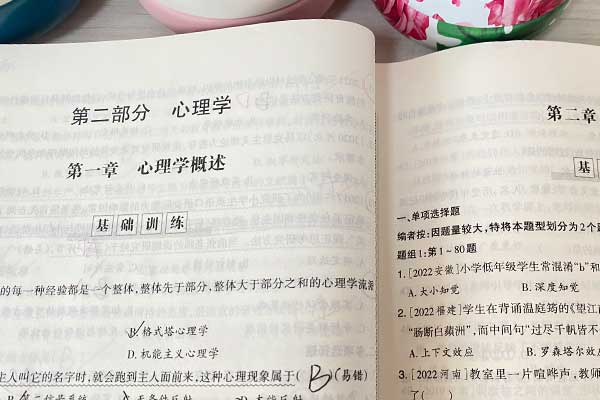 第二部分 心理学
第一章 心理学概述
基础训练
的每一种经验都是一个整体,整体先于部分,整体大于部分之和的心理学流派
B.格式塔心理学
D.机能主义心理学
主人叫它的名字时,就会跑到主人面前来,这种心理现象属于( B )(易错)
第二章
基
一、单项选择题
编者按:因题量较大,特将本题型划分为2个题
题组1:第1~80题
1.[2022安徽]小学低年级学生常混淆“b”和
A.大小知觉 B.深度知觉
2.[2022福建]学生在背诵温庭筠的《望江南
“肠断白蘋洲”,而中间句“过尽千帆皆不
A.上下文效应 B.罗森塔尔效应
3.[2022河南]教室里一片喧哗声,教师
了( )